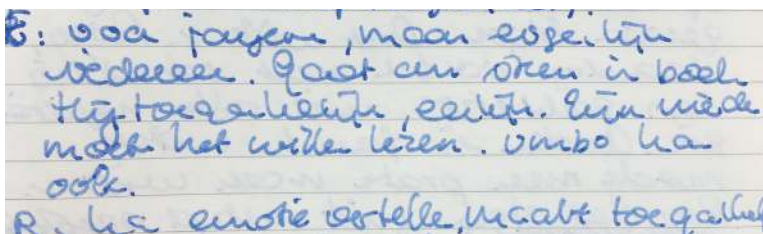 E: voor jongeren, maar eigenlijk
iedereen. Gaat om in boek
toegankelijk, eerlijk. Zijn
moet het willen lezen. vmbo ha
ook.
R. na emotie vertelle, maakt toegankel